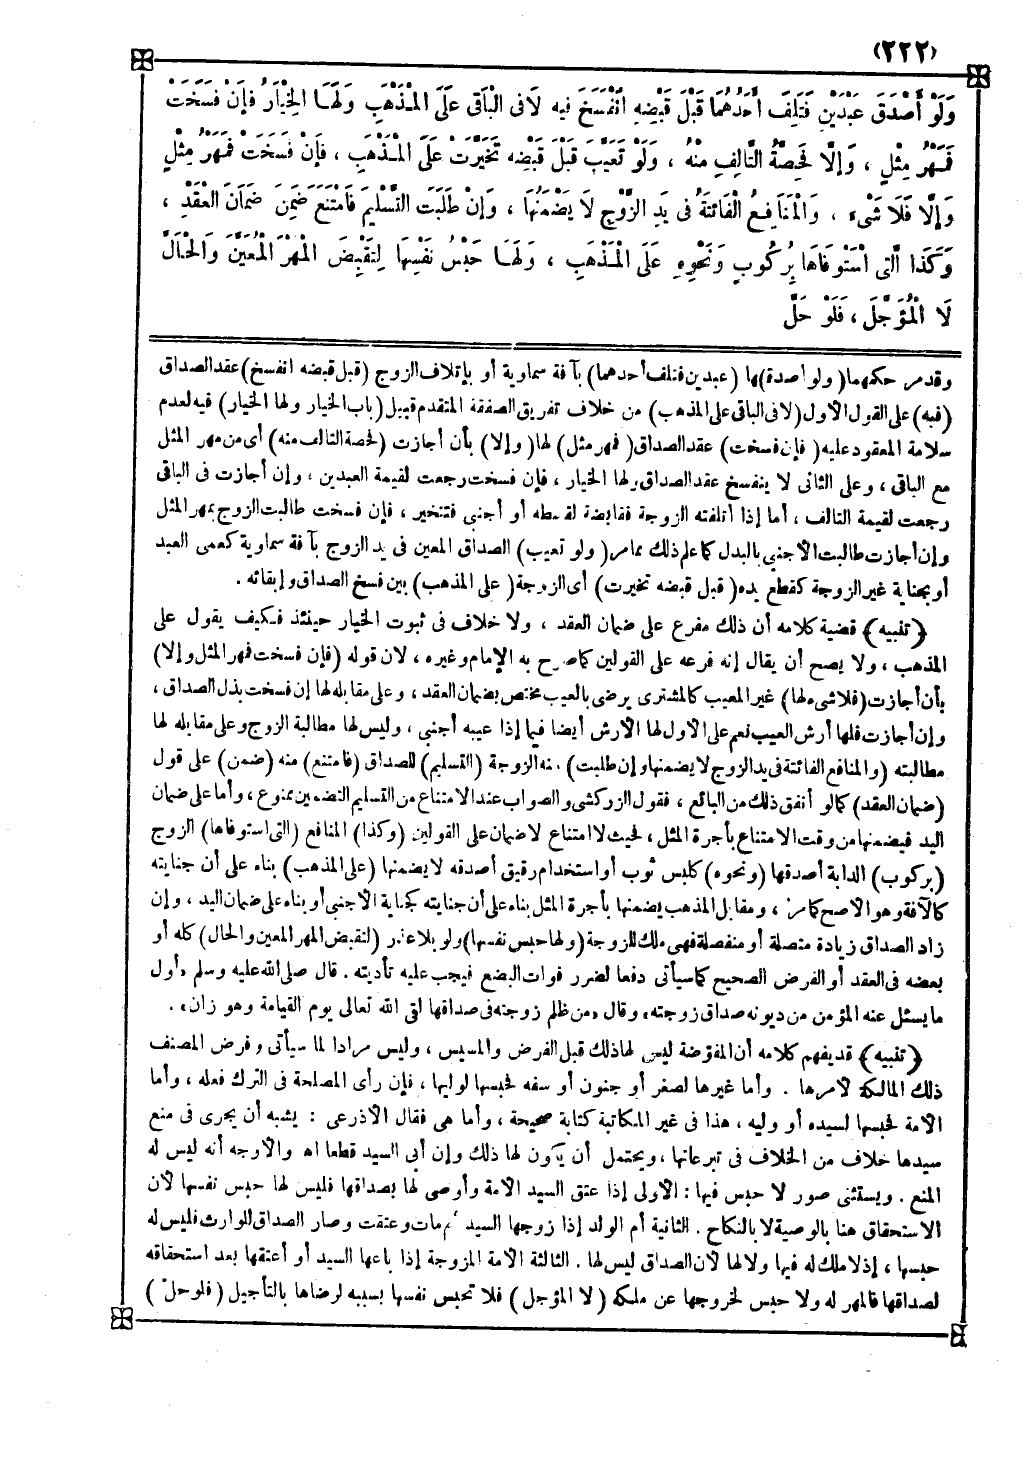 (٢٢٢)
وَلَوْ أَصْدَقَ عَبْدَيْنِ فَتَلِفَ أَحَدُهُمَا قَبْلَ قَبْضِهِ انْفَسَخَ فِيهِ لَا فِي الْبَاقِي عَلَى الْمَذْهَبِ وَلَهَا الْخِيَارُ فَإِنْ فَسَخَتْ
فَمَهْرُ مِثْلٍ ، وَإِلَّا فَحِصَّةُ التَّالِفِ مِنْهُ ، وَلَوْ تَعَيَّبَ قَبْلَ قَبْضِهِ تَخَيَّرَتْ عَلَى الْمَذْهَبِ ، فَإِنْ فَسَخَتْ فَمَهْرُ مِثْلٍ
وَإِلَّا فَلَا شَيْءَ ، وَالْمَنَافِعُ الْفَائِتَةُ فِي يَدِ الزَّوْجِ لَا يَضْمَنُهَا ، وَإِنْ طَلَبَتِ التَّسْلِيمَ فَامْتَنَعَ ضَمِنَ ضَمَانَ الْعَقْدِ ،
وَكَذَا الَّتِي اسْتَوْفَاهَا بِرُكُوبٍ وَنَحْوِهِ عَلَى الْمَذْهَبِ ، وَلَهَا حَبْسُ نَفْسِهَا لِتَقْبِضَ الْمَهْرَ الْمُعَيَّنَ وَالْحَالَّ
لَا الْمُؤَجَّلَ ، فَلَوْ حَلَّ
وقد مر حكمهما (ولو أصدق)ها (عبدين فتلف أحدهما) بآفة سماوية أو بإتلاف الزوج (قبل قبضه انفسخ) عقد الصداق
(فيه) على القول الأول (لا في الباقي على المذهب) من خلاف تفريق الصفقة المتقدم قبيل (باب الخيار ولها الخيار) فيه لعدم
سلامة المعقود عليه (فإن فسخت) عقد الصداق (فمهر مثل) لها (وإلا) بأن أجازت (فحصة التالف منه) أى من مهر المثل
مع الباقى ، وعلى الثانى لا ينفسخ عقد الصداق ولها الخيار ، فإن فسخت رجعت لقيمة العبدين ، وإن أجازت فى الباقى
رجعت لقيمة التالف ، أما إذا أتلفته الزوجة فقابضة لقسطه أو أجنبى فتتخير ، فإن فسخت طالبت الزوج بمهر المثل
وإن أجازت طالبت الأجنبى بالبدل كما علم ذلك مما مر (ولو تعيب) الصداق المعين فى يد الزوج بآفة سماوية كعمى العبد
أو بجناية غير الزوجة كقطع يده (قبل قبضه تخيرت) أى الزوجة (على المذهب) بين فسخ الصداق وإبقائه .
(تنبيه) قضية كلامه أن ذلك مفرع على ضمان العقد ، ولا خلاف فى ثبوت الخيار حينئذ فكيف يقول على
المذهب ، ولا يصح أن يقال إنه فرعه على القولين كما صرح به الإمام وغيره ، لأن قوله (فإن فسخت فمهر المثل وإلا)
بأن أجازت (فلا شىء لها) غير المعيب كالمشترى يرضى بالعيب مختص بضمان العقد ، وعلى مقابله لها إن فسخت بدل الصداق ،
وإن أجازت فلها أرش العيب نعم على الأول لها الأرش أيضا فيما إذا عيبه أجنبى ، وليس لها مطالبة الزوج وعلى مقابله لها
مطالبته (والمنافع الفائتة فى يد الزوج لا يضمنها وإن طلبت) منه الزوجة (التسليم) للصداق (فامتنع) منه (ضمن) على قول
(ضمان العقد) كما لو أنفق ذلك من البائع ، فقول الزركشى والصواب عند الامتناع من التسليم التضمين ممنوع ، وأما على ضمان
اليد فيضمنها من وقت الامتناع بأجرة المثل ، فحيث لا امتناع لا ضمان على القولين (وكذا) المنافع (التى استوفاها) الزوج
(بركوب) الدابة أصدقها (ونحوه) كلبس ثوب أو استخدام رقيق أصدقه لا يضمنها (على المذهب) بناء على أن جنايته
كالآفة وهو الأصح كما مر ، ومقابل المذهب يضمنها بأجرة المثل بناء على أن جنايته كجناية الأجنبى أو بناء على ضمان اليد ، وإن
زاد الصداق زيادة متصلة أو منفصلة فهى ملك للزوجة (ولها حبس نفسها) ولو بلا عذر (لتقبض المهر المعين والحال) كله أو
بعضه فى العقد أو الفرض الصحيح كما سيأتى دفعا لضرر فوات البضع فيجب عليه تأديته . قال صلى الله عليه وسلم «أول
ما يسئل عنه المؤمن من ديونه صداق زوجته» وقال «من ظلم زوجته فى صداقها لقى الله تعالى يوم القيامة وهو زان» .
(تنبيه) قد يفهم كلامه أن المفوّضة ليس لها ذلك قبل الفرض والمسيس ، وليس مرادا لما سيأتى وفرض المصنف
ذلك المالكة لأمرها . وأما غيرها لصغر أو جنون أو سفه فحبسها لوليها ، فإن رأى المصلحة فى الترك فعله ، وأما
الأمة فحبسها لسيده أو وليه ، هذا فى غير المكاتبة كتابة صحيحة ، وأما هى فقال الأذرعى : يشبه أن يجرى فى منع
سيدها خلاف من الخلاف فى تبرعاتها ، ويحتمل أن يكون لها ذلك وإن أبى السيد قطعا اه والأوجه أنه ليس له
المنع . ويستثنى صور لا حبس فيها : الأولى إذا عتق السيد الأمة وأوصى لها بصداقها فليس لها حبس نفسها لأن
الاستحقاق هنا بالوصية لا بالنكاح . الثانية أم الولد إذا زوجها السيد ثم مات وعتقت وصار الصداق للوارث فليس له
حبسها ، إذ لا ملك له فيها ولا لها لأن الصداق ليس لها . الثالثة الأمة المزوجة إذا باعها السيد أو أعتقها بعد استحقاقه
لصداقها فالمهر له ولا حبس لخروجها عن ملكه (لا المؤجل) فلا تحبس نفسها بسببه لرضاها بالتأجيل (فلو حلّ)